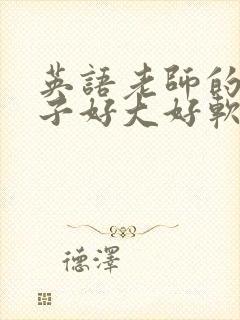 英語老師的
子好大好軟
德澤